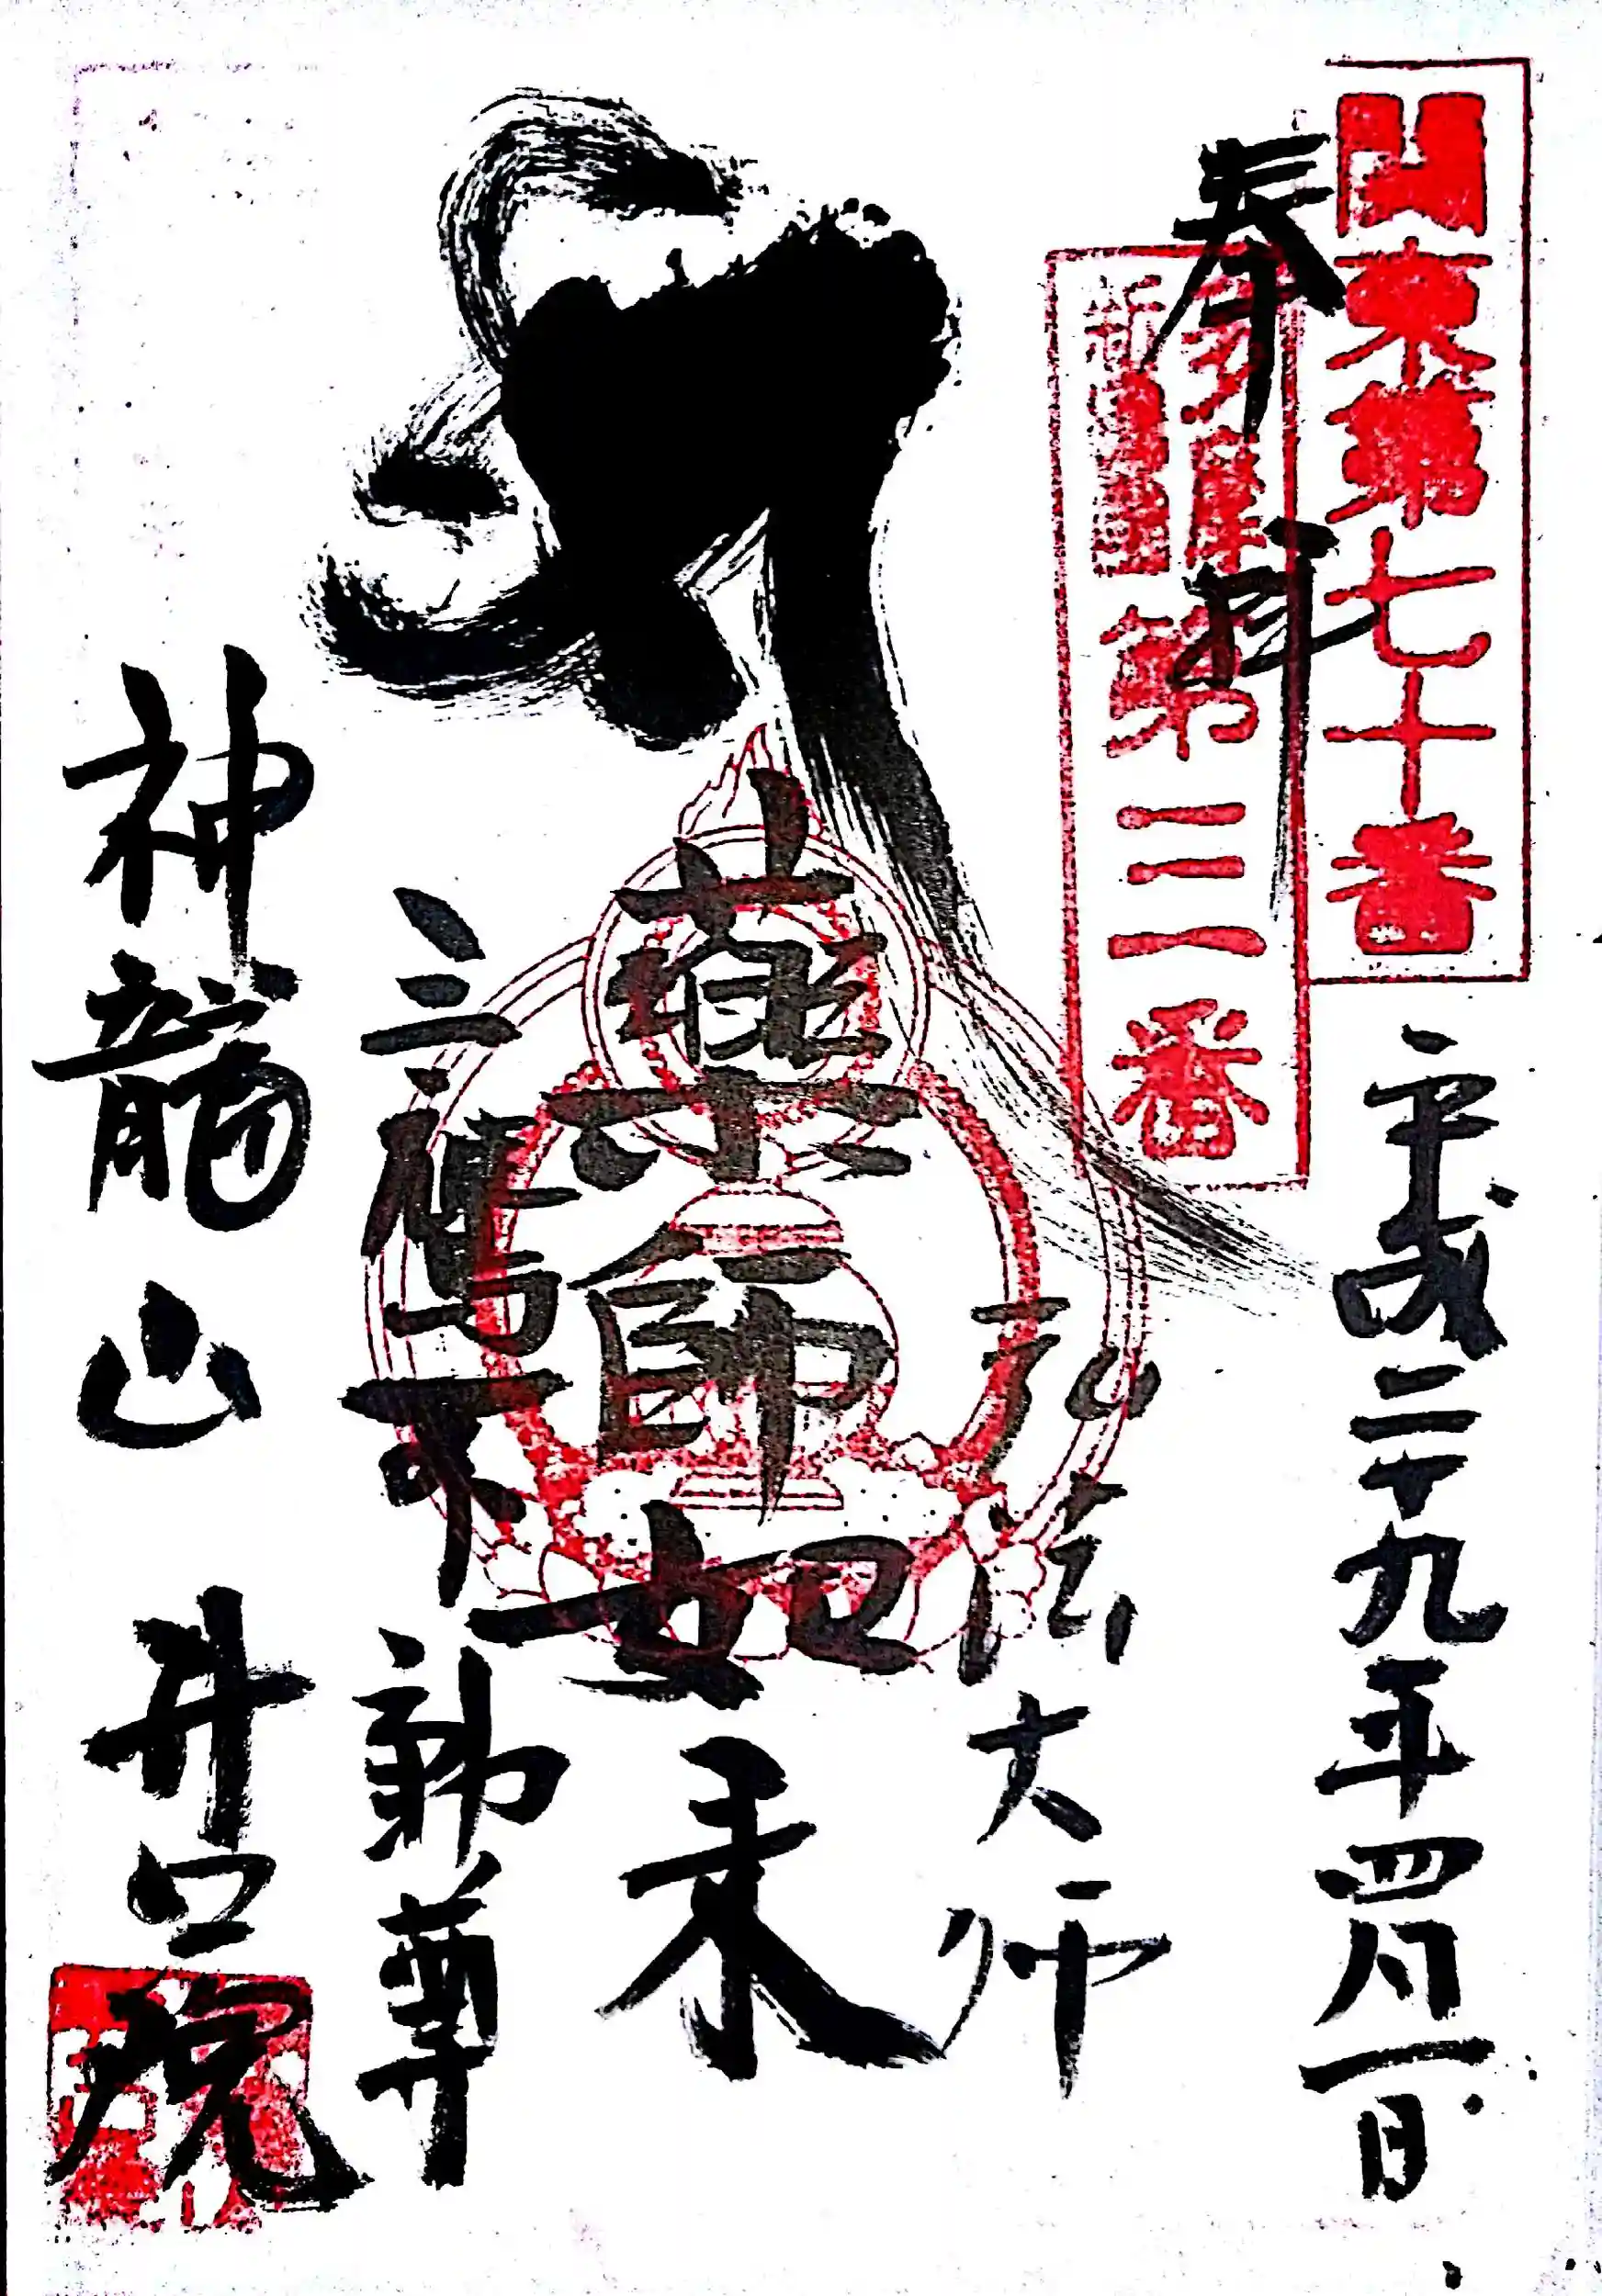 関東第七十番
多摩
第三番
奉拝
平成二十九年四月一日
弘法大師
薬師如来
不動尊
神龍山 井口院